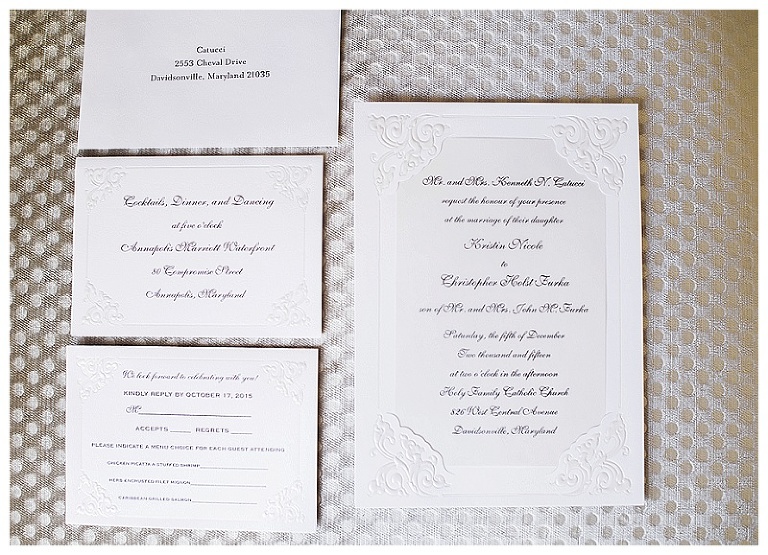 Catucci
2553 Cheval Drive
Davidsonville, Maryland 21035
Cocktails, Dinner, and Dancing
at five o'clock
Annapolis Marriott Waterfront
80 Compromise Street
Annapolis, Maryland
We look forward to celebrating with you!
KINDLY REPLY BY OCTOBER 17, 2015
M
ACCEPTS REGRETS
PLEASE INDICATE A MENU CHOICE FOR EACH GUEST ATTENDING
CHICKEN PICATTA & STUFFED SHRIMP
HERB ENCRUSTED FILET MIGNON
CARIBBEAN GRILLED SALMON
Mr. and Mrs. Kenneth N. Catucci
request the honour of your presence
at the marriage of their daughter
Kristin Nicole
to
Christopher Holst Furka
son of Mr. and Mrs. John M. Furka
Saturday, the fifth of December
Two thousand and fifteen
at two o'clock in the afternoon
Holy Family Catholic Church
826 West Central Avenue
Davidsonville, Maryland